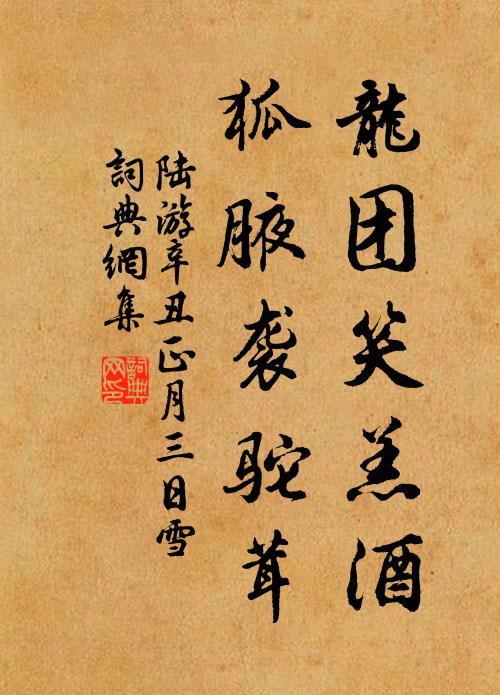 龍团笑羔酒
狐腋袭驼茸
陆游辛丑正月三日雪
詞典網集
詞典
网印